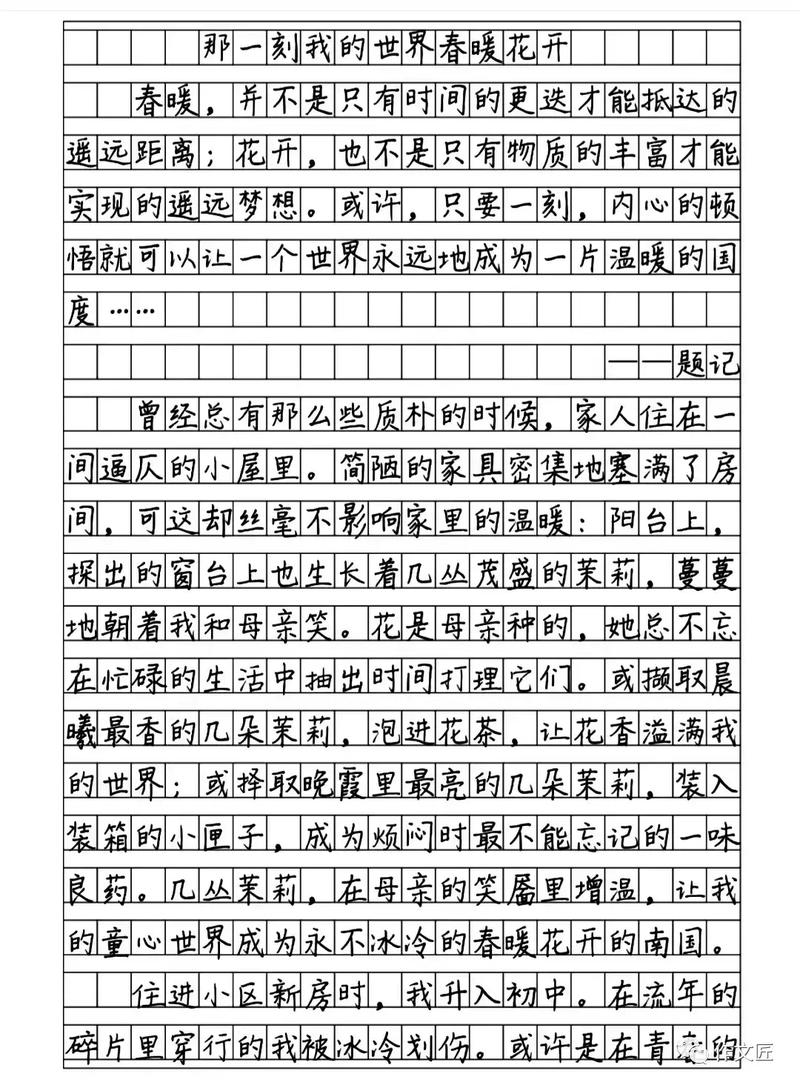 那一刻我的世界春暖花开
春暖，并不是只有时间的更迭才能抵达的
遥远距离；花开，也不是只有物质的丰富才能
实现的遥远梦想。或许，只要一刻，内心的顿
悟就可以让一个世界永远地成为一片温暖的国
度……
——题记
曾经总有那么些质朴的时候，家人住在一
间逼仄的小屋里。简陋的家具密集地塞满了房
间，可这却丝毫不影响家里的温暖：阳台上，
探出的窗台上也生长着几丛茂盛的茉莉，蔓蔓
地朝着我和母亲笑。花是母亲种的，她总不忘
在忙碌的生活中抽出时间打理它们。或撷取晨
曦最香的几朵茉莉，泡进花茶，让花香溢满我
的世界；或择取晚霞里最亮的几朵茉莉，装入
装箱的小匣子，成为烦闷时最不能忘记的一味
良药。几丛茉莉，在母亲的笑靥里增温，让我
的童心世界成为永不冰冷的春暖花开的南国。
住进小区新房时，我升入初中。在流年的
碎片里穿行的我被冰冷划伤。或许是在青的
作文匠